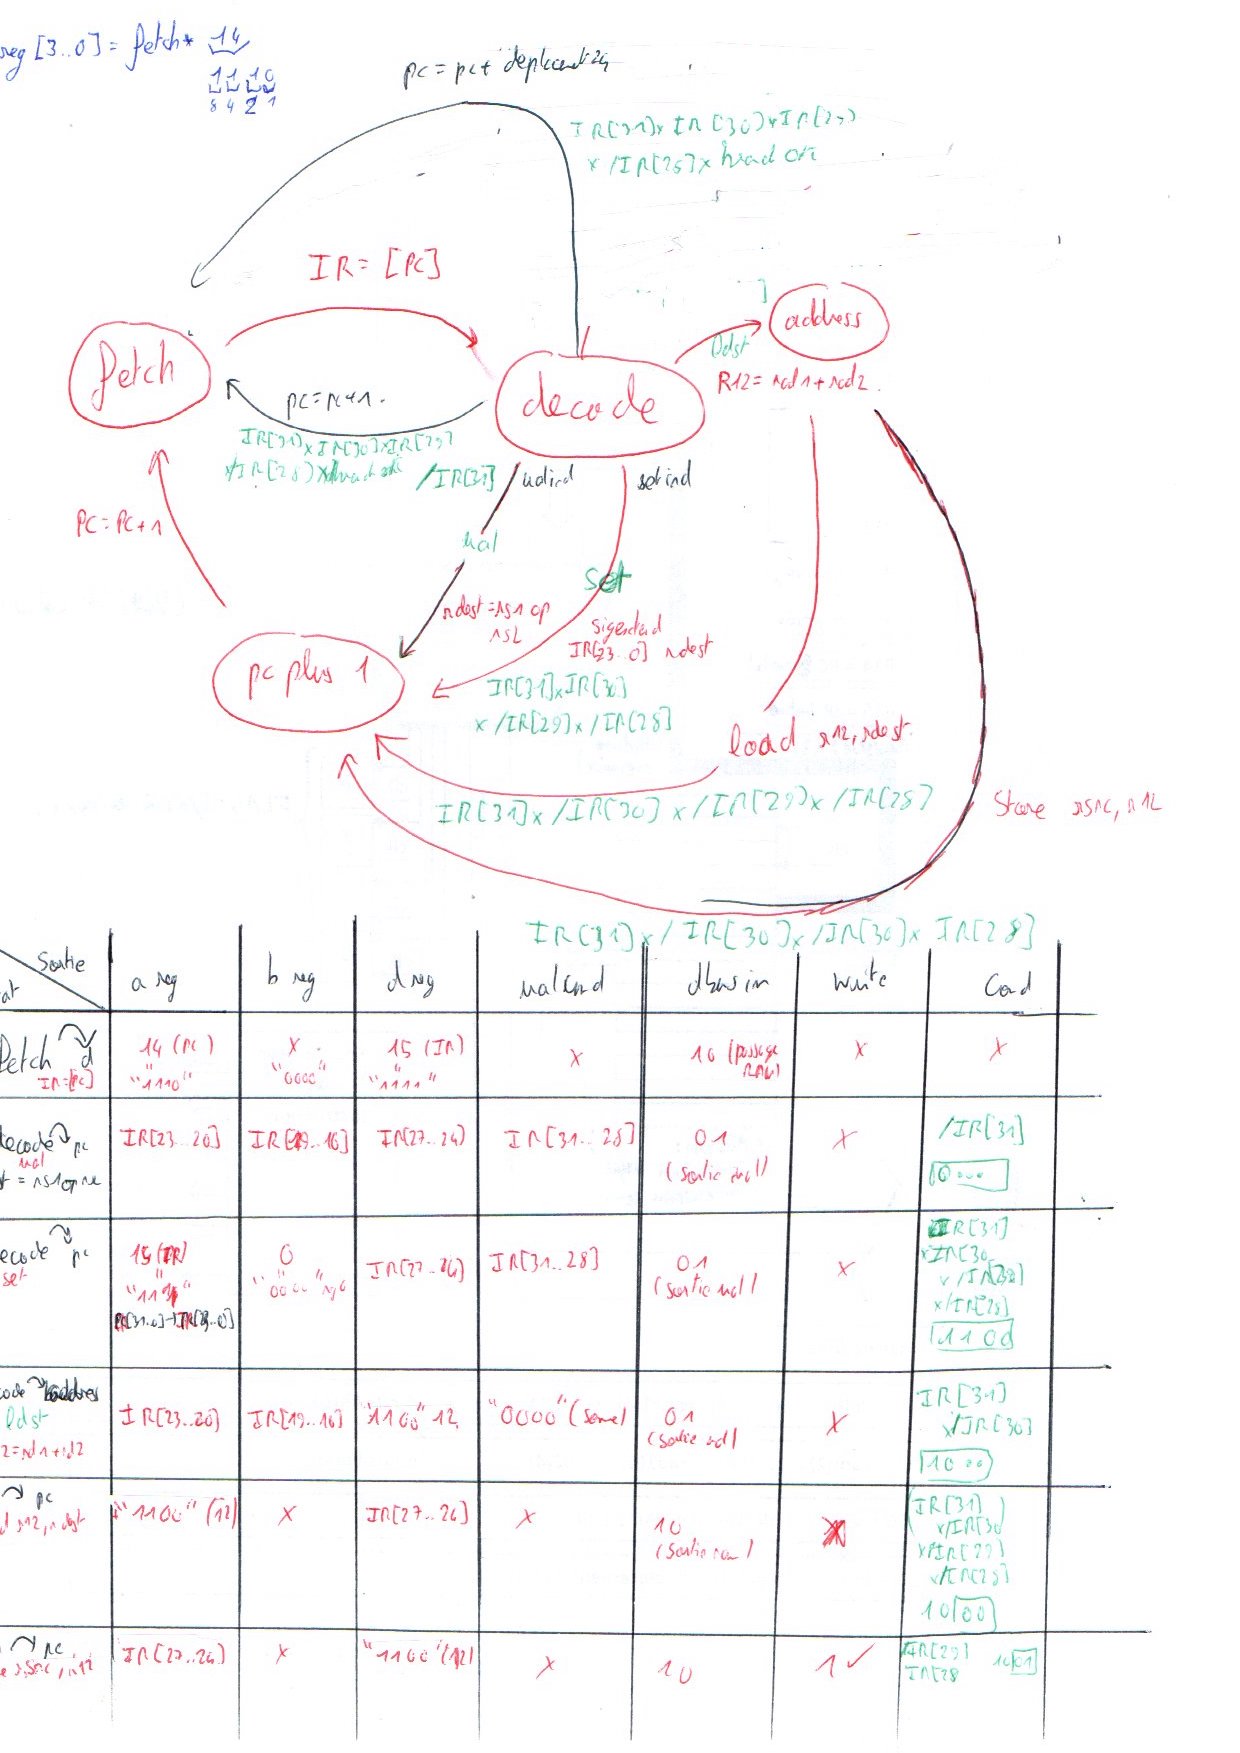 reg [3..0] = fetch * 14
11 10
8 4 2 1
pc = pc +
IR[31] x IR[30] x IR[29]
x /IR[28] x
IR = [PC]
address
fetch
decode
ldst
R12 = rd1 + rd2
pc = pc+1.
IR[31] x IR[30] x IR[29]
x IR[28] x
/IR[31]
ualind
setind
PC = PC+1
ual
set
rdest = rs1 op
rs2
IR[23..0] rdest
pc plus 1
IR[31] x IR[30]
x /IR[29] x /IR[28]
load r12, rdest.
IR[31] x /IR[30] x /IR[29] x /IR[28]
Store rsrc, r12
IR[31] x /IR[30] x /IR[30] x IR[28]
Sortie
at
a reg
b reg
d reg
ualcmd
dbusin
write
Cond
Fetch d
IR=[PC]
14 (PC)
"1110"
x
"0000"
15 (IR)
"1111"
x
10 (passage
RAM)
x
x
decode pc
ual
t = rs1 op rs2
IR[23..20]
IR[19..16]
IR[27..24]
IR[31..28]
01
(sortie ual)
x
/IR[31]
0...
ecode pc
set
15 (IR)
0
"0000"
IR[27..24]
IR[31..28]
01
(sortie ual)
x
IR[31]
x IR[30
x /IR[29]
x /IR[28]
1100
code address
ldst
2=rd1+rd2
IR[23..20]
IR[19..16]
"1100" 12
"0000" (somme)
01
(sortie ual)
x
IR[31]
x/IR[30]
10 00
pc
d r12, rdest
"1100" (12)
x
IR[27..24]
x
10
(sortie ram)
IR[31]
x/IR[30
x/IR[29]
x/IR[28]
10 00
pc
e rsrc, r12
IR[27..24]
x
"1100" (12)
x
10
1 ✓
/IR[29]
IR[28
10 01